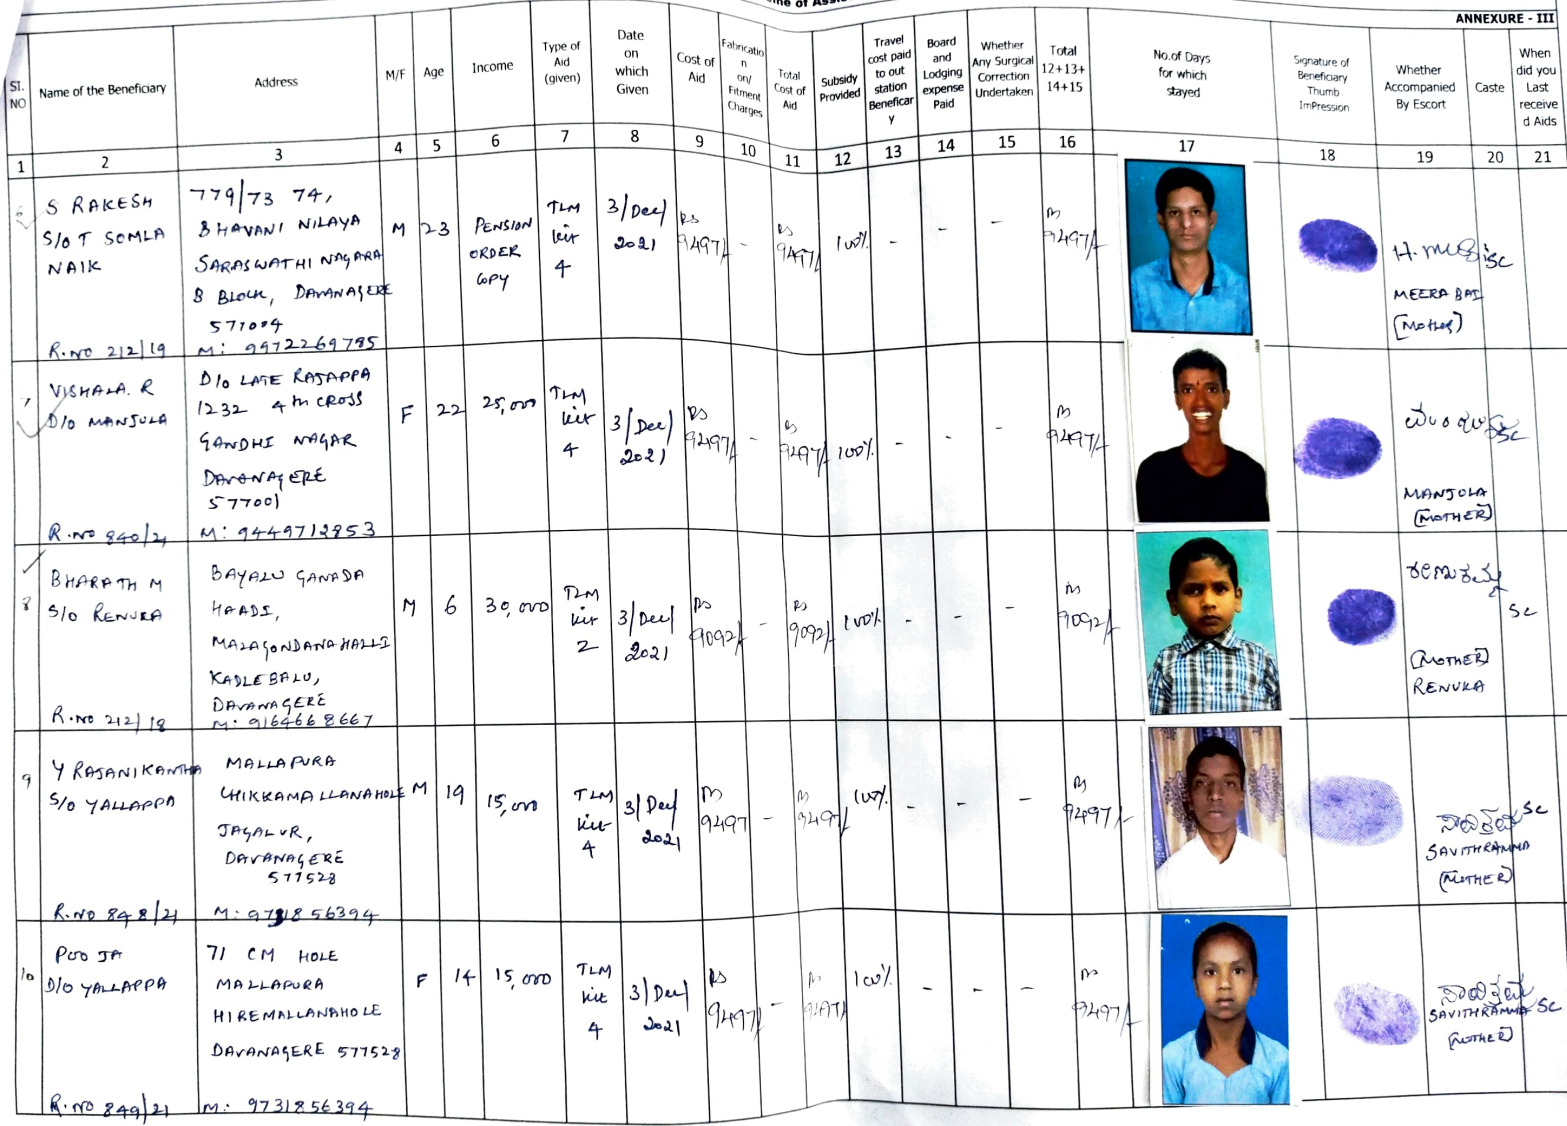 ANNEXURE - III
SI. NO
Name of the Beneficiary
Address
M/F
Age
Income
Type of Aid (given)
Date on which Given
Cost of Aid
Fabricatio n on/ Fitment Charges
Total Cost of Aid
Subsidy Provided
Travel cost paid to out station Beneficar y
Board and Lodging expense Paid
Whether Any Surgical Correction Undertaken
Total 12+13+ 14+15
No.of Days for which stayed
Signature of Beneficiary Thumb ImPression
Whether Accompanied By Escort
Caste
When did you Last receive d Aids
1 2 3 4 5 6 7 8 9 10 11 12 13 14 15 16 17 18 19 20 21
6
S RAKESH
S/O T SOMLA
NAIK
R.NO 212/19
779/73 74,
BHAVANI NILAYA
SARASWATHI NAGARA
B BLOCK, DAVANAGERE
577004
M: 9972269785
M
23
PENSION
ORDER
COPY
TLM
kit
4
3/Dec/
2021
Rs
9497/-
-
Rs
9497/-
100%
-
-
-
Rs
9497/-
MEERA BAI
(Mother)
SC
7
VISHALA. R
D/O MANJULA
R.NO 840/21
D/O LATE RAJAPPA
1232 4th CROSS
GANDHI NAGAR
DAVANAGERE
577001
M: 9449712853
F
22
25,000
TLM
kit
4
3/Dec/
2021
Rs
9497/-
-
Rs
9497/-
100%
-
-
-
Rs
9497/-
MANJULA
(MOTHER)
SC
8
BHARATH M
S/O RENUKA
R.NO 212/18
BAYALU GANADA
HAADI,
MALAGONDANAHALLI
KADLEBALU,
DAVANAGERE
M: 9164668667
M
6
30,000
TLM
kit
2
3/Dec/
2021
Rs
9092/-
-
Rs
9092/-
100%
-
-
-
Rs
9092/-
(MOTHER)
RENUKA
SC
9
Y RAJANIKANTHA
S/O YALLAPPA
R.NO 848/21
MALLAPURA
CHIKKAMALLANAHOLE
JAGALUR,
DAVANAGERE
577528
M: 9731856394
M
19
15,000
TLM
kit
4
3/Dec/
2021
Rs
9497
-
Rs
9497/-
100%
-
-
-
Rs
9497/-
SAVITHRAMMA
(MOTHER)
SC
10
POOJA
D/O YALLAPPA
R.NO 849/21
71 CM HOLE
MALLAPURA
HIREMALLANAHOLE
DAVANAGERE 577528
M: 9731856394
F
14
15,000
TLM
kit
4
3/Dec/
2021
Rs
9497/-
-
Rs
9497/-
100%
-
-
-
Rs
9497/-
SAVITHRAMMA
(MOTHER)
SC